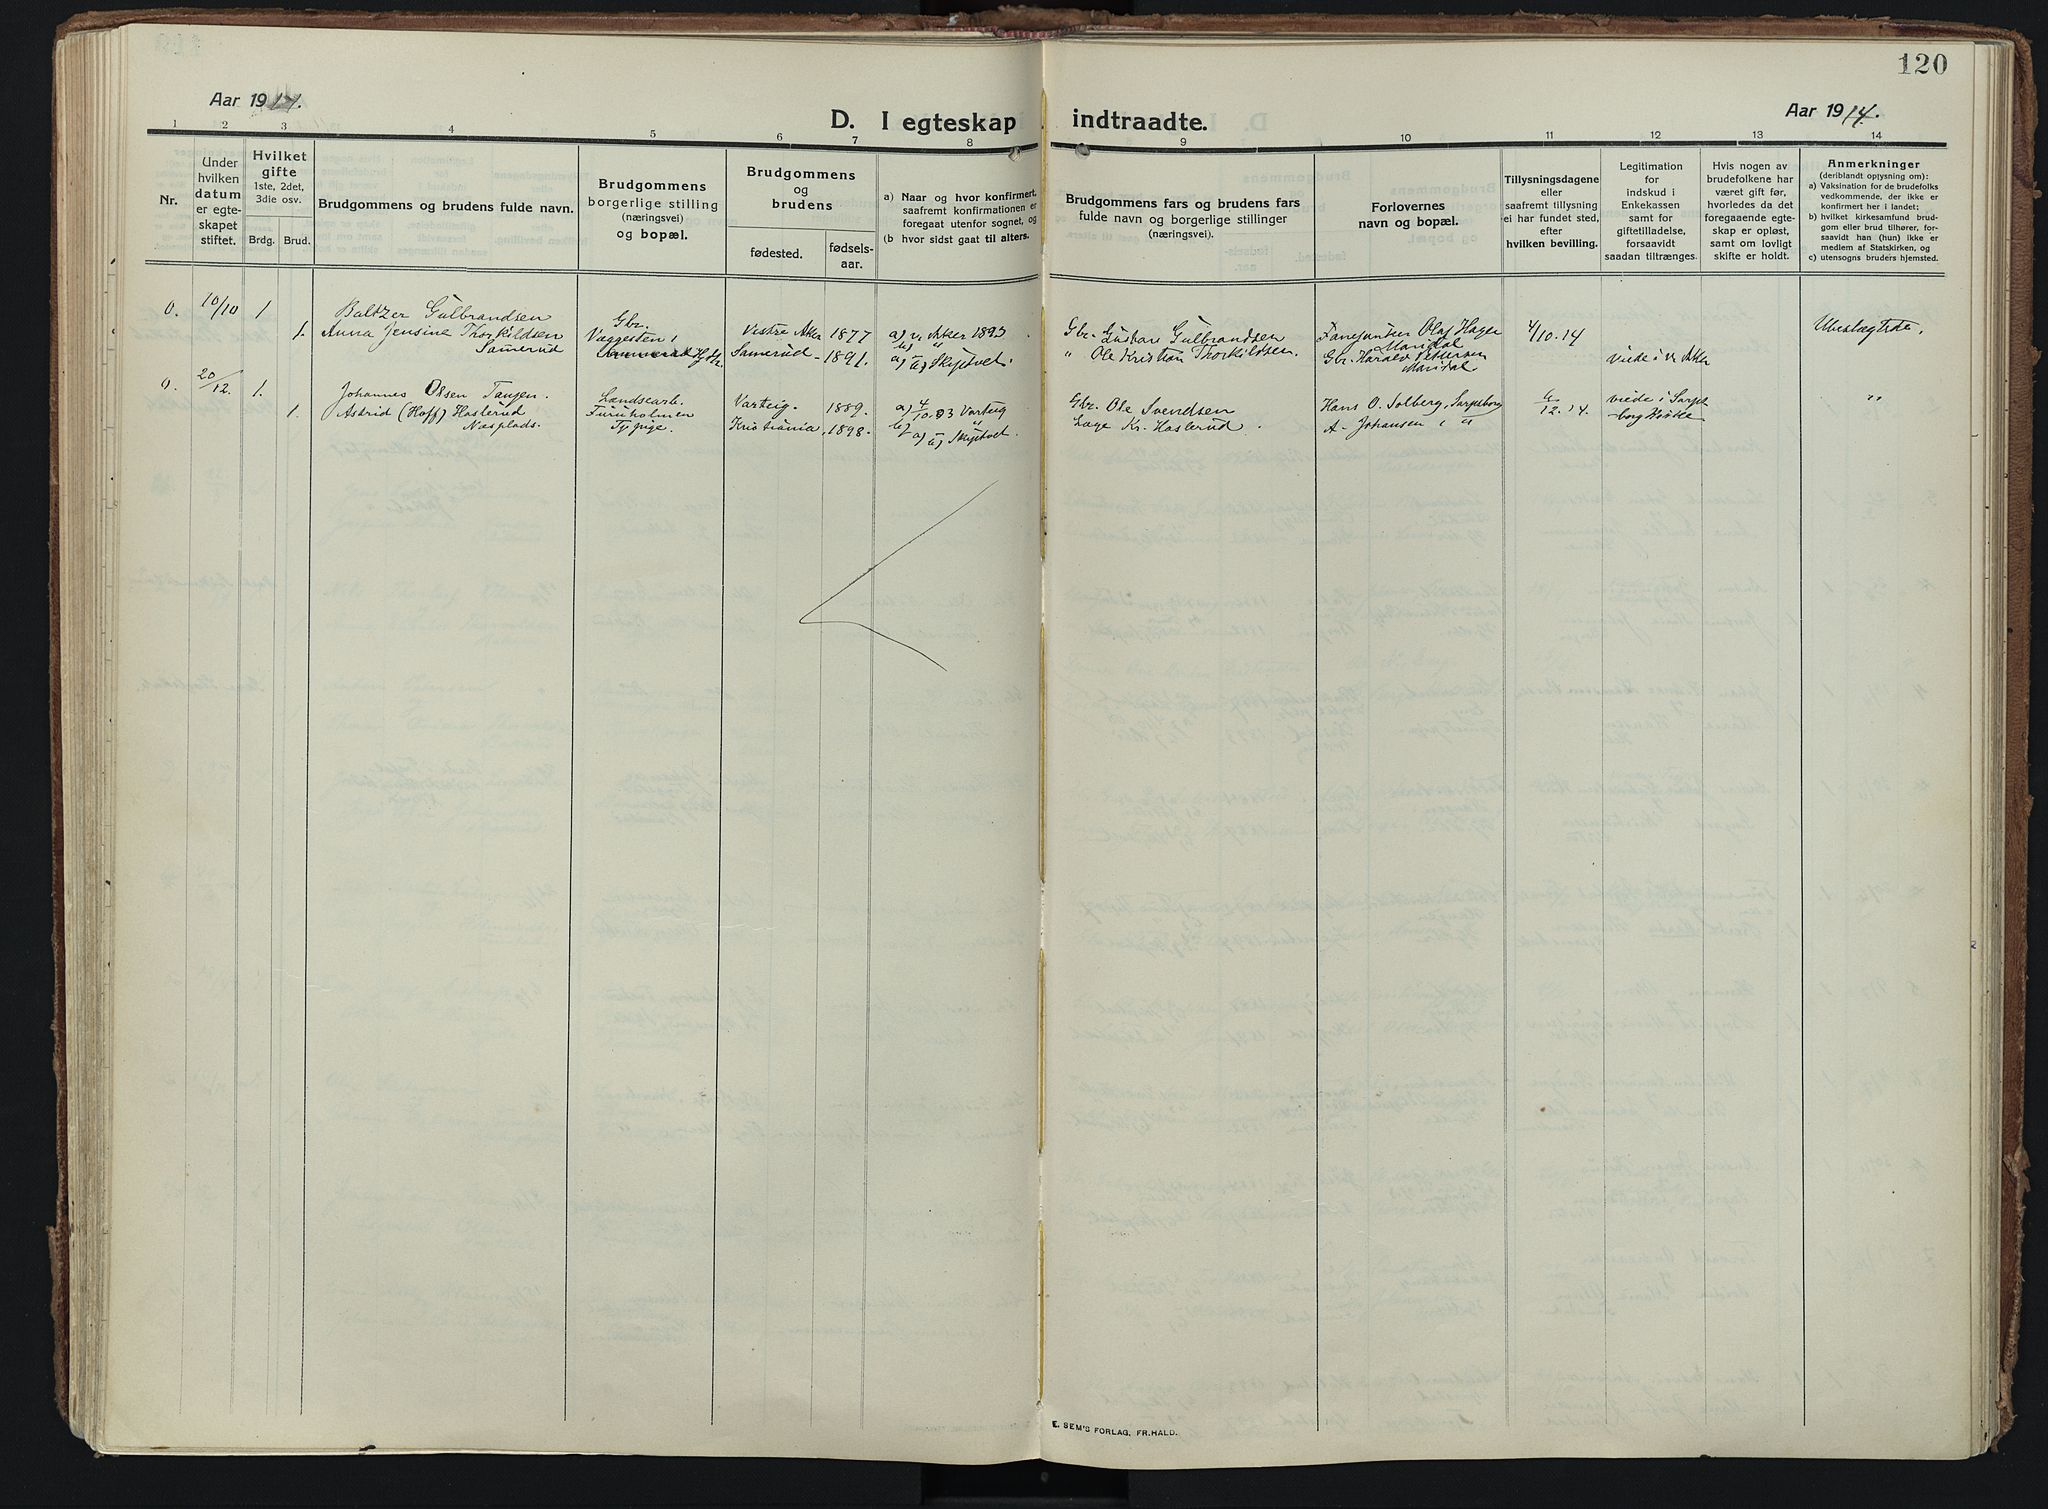 120
Aar 1914.
D. I egteskap indtraadte.
Aar 1914.
1 2 3 4 5 6 7 8 9 10 11 12 13 14
Nr.
Under
hvilken
datum
er egte-
skapet
stiftet.
Hvilket
gifte
1ste, 2det,
3die osv.
Brdg. Brud.
Brudgommens og brudens fulde navn.
Brudgommens
borgerlige stilling
(næringsvei)
og bopæl.
Brudgommens
og
brudens
fødested.
fødsels-
aar.
a) Naar og hvor konfirmert,
saafremt konfirmationen er
foregaat utenfor sognet, og
(b hvor sidst gaat til alters.
Brudgommens fars og brudens fars
fulde navn og borgerlige stillinger
(næringsvei).
Forlovernes
navn og bopæl.
Tillysningsdagene
eller
saafremt tillysning
ei har fundet sted,
efter
hvilken bevilling.
Legitimation
for
indskud i
Enkekassen
samt for
giftetilladelse,
forsaavidt
saadan tiltrænges.
Hvis nogen av
brudefolkene har
været gift før,
hvorledes da det
foregaaende egte-
skap er opløst,
samt om lovligt
skifte er holdt.
Anmerkninger
(deriblandt oplysning om):
a) Vaksination for de brudefolks
vedkommende, der ikke er
konfirmert her i landet;
b) hvilket kirkesamfund brud-
gom eller brud tilhører, for-
saavidt han (hun) ikke er
medlem af Statskirken, og
c) utensogns bruders hjemsted.
0. 10/10 1 Baltzer Gulbrandsen Gbr.
1. Anna Jensine Thorkildsen
Samerud
Vestre Aker 1877 a) v. Aker 1893
Samerud - 1891. a) b) Skjptvet.
Gbr. Gustav Gulbrandsen
" Ole Kristian Thorkildsen.
Olaf Hagen
Maridal
Gbr. Harald Pettersen
Maridal
4/10.14
viede i v. Aker
Ubeslægtede,
0. 20/12 1. Johannes Olsen Tangen. Landsearb.
1. Astrid (Hoff) Haslerud Furuholmen
Næsplads. Typige.
Varteig. 1889. a) 4/10.03 Varteig
Kristiania, 1898. a) b) Skjptvet.
Gbr. Ole Svendsen
Lage Kr. Haslerud.
Hans O. Solberg, Sarpsborg
A. Johansen i "
6/12.14.
viede i Sarps-
borg Kirke
"
E. SEM'S FORLAG, FR.HALD.